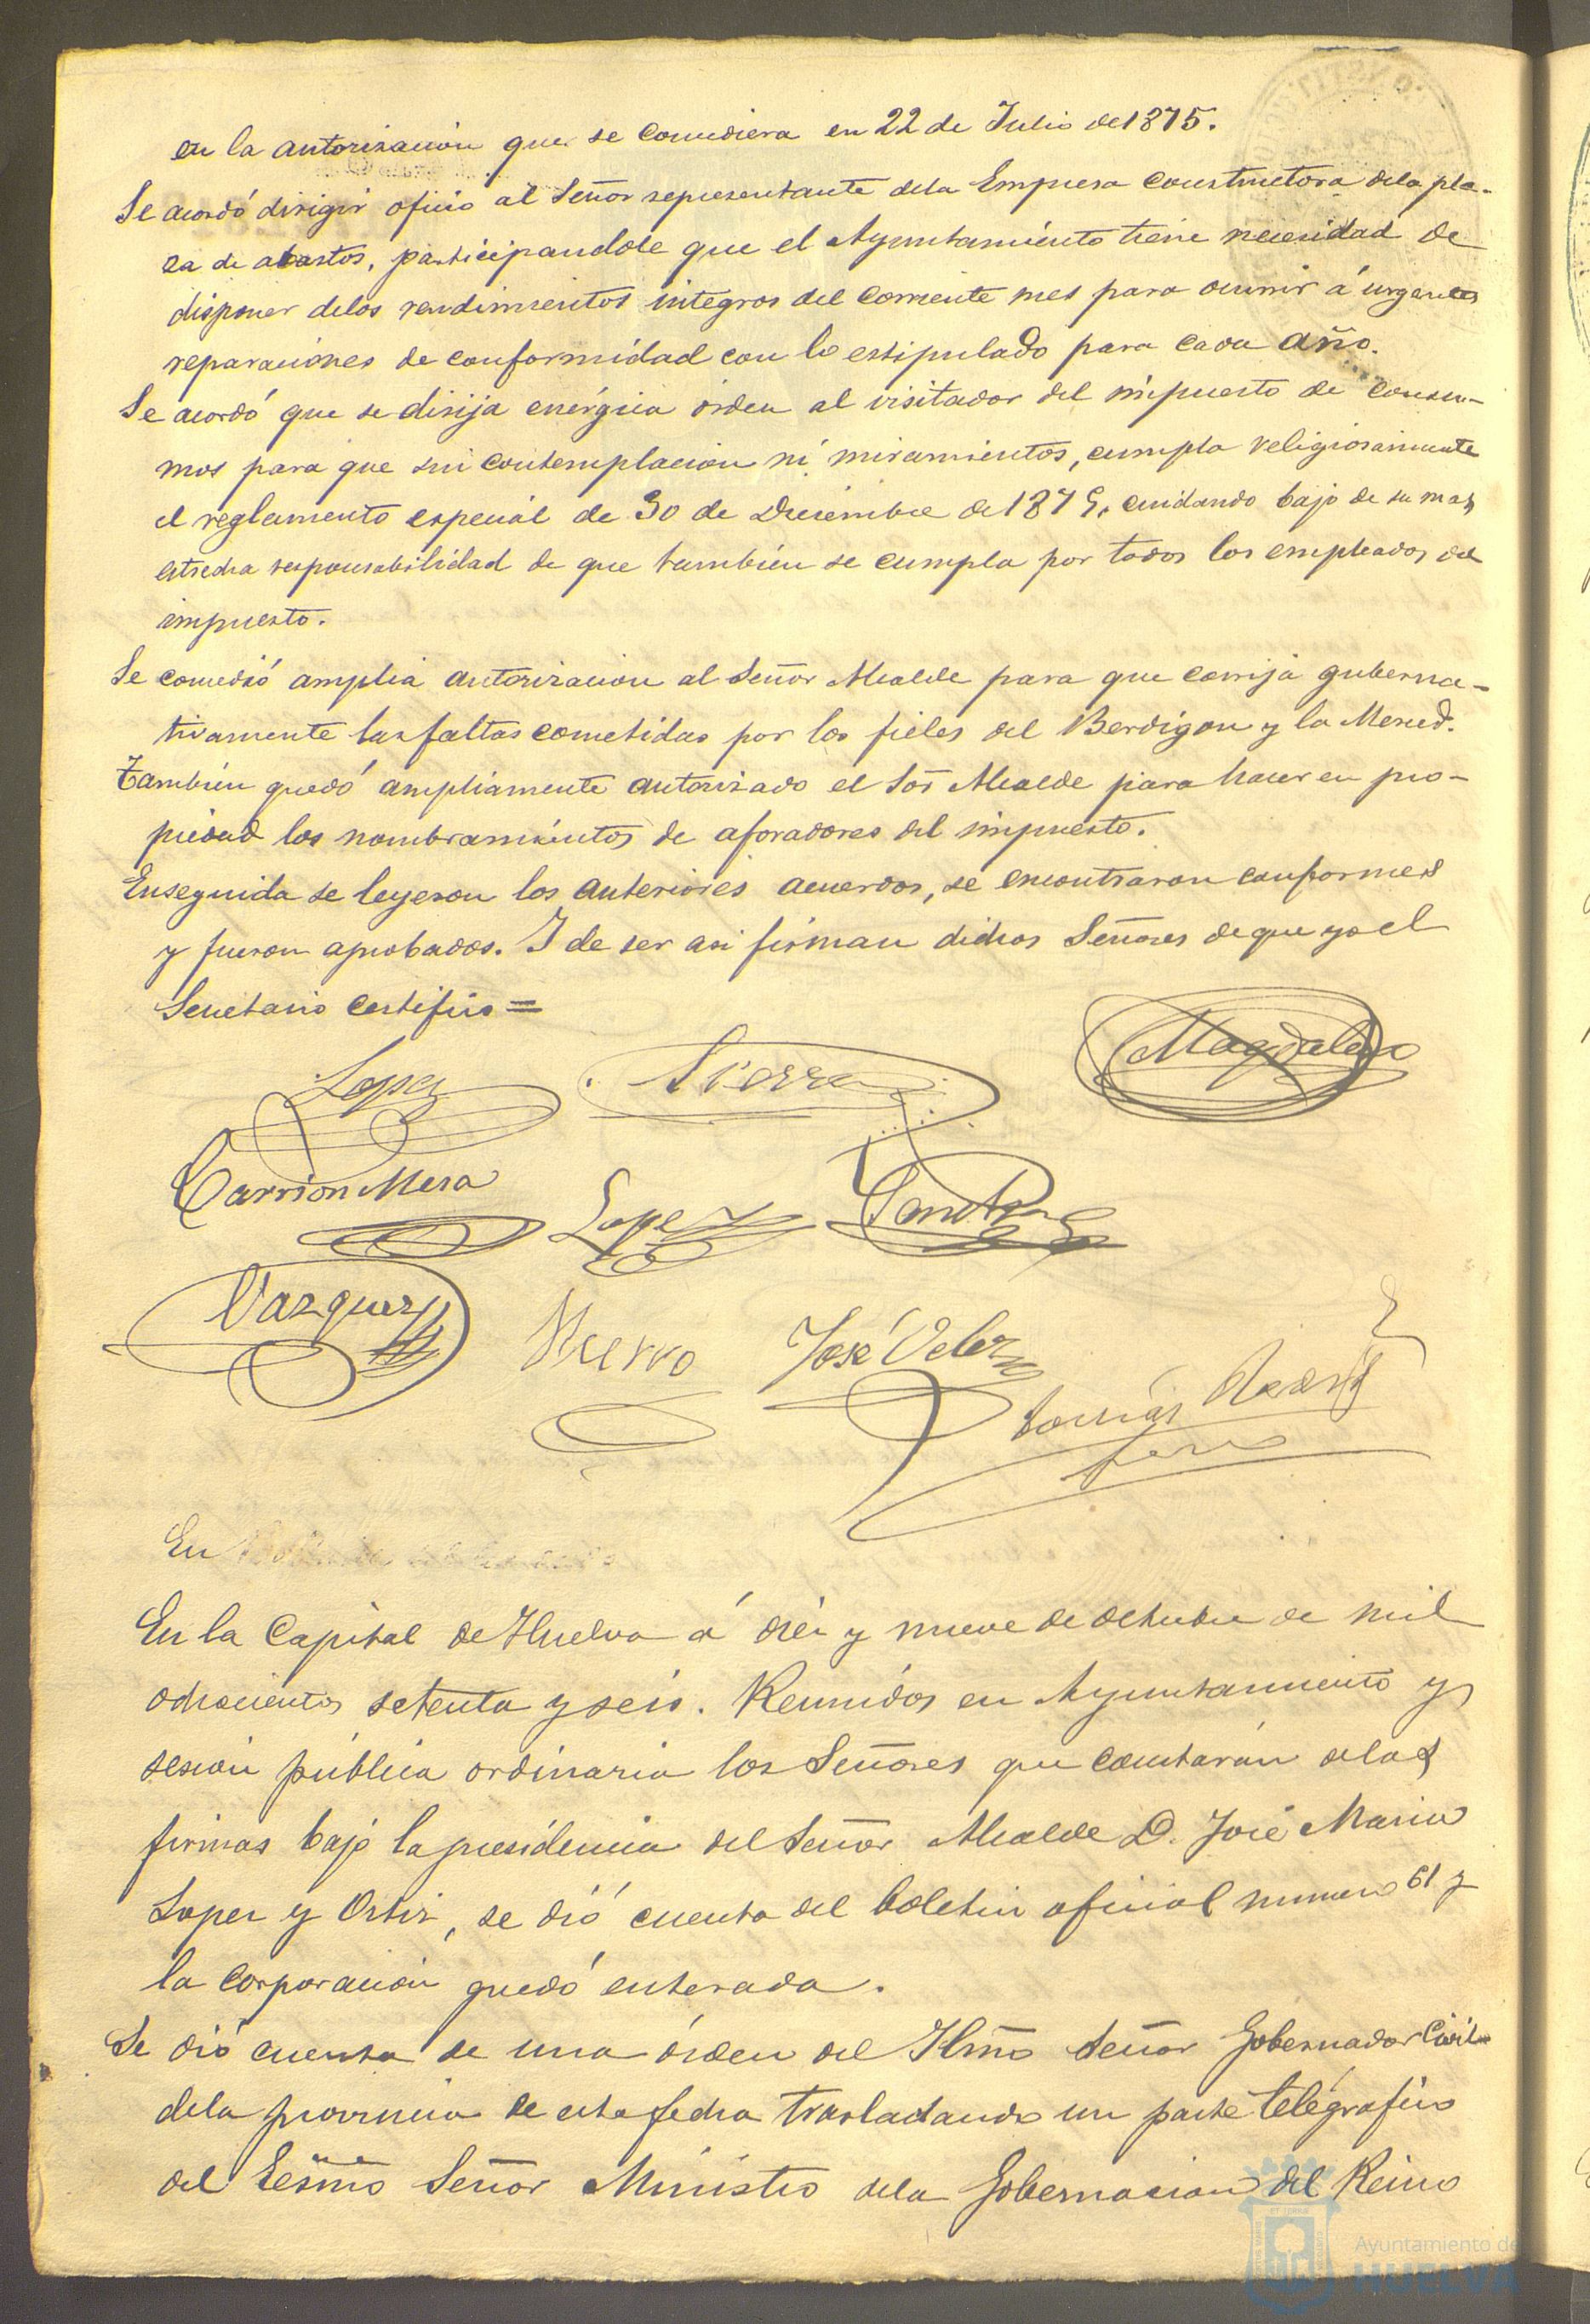 en la autorizacion que se concediera en 22 de Julio de 1875.
Se acordó dirigir oficio al Señor representante dela Empresa constructora dela pla-
za de abastos, participandole que el Ayuntamiento tiene necesidad de
disponer delos rendimientos integros del corriente mes para ocurrir á urgentes
reparaciones de conformidad con lo estipulado para cada año.
Se acordó que se dirija enérgica órden al visitador del impuesto de consu-
mos para que sin contemplacion ni miramientos, cumpla religiosamente
el reglamento especial de 30 de Diciembre de 1875, cuidando bajo de su mas
estrecha responsabilidad de que tambien se cumpla por todos los empleados del
impuesto.
Se concedió amplia autorizacion al Señor Alcalde para que corrija guberna-
tivamente las faltas cometidas por los fieles del Berdigon y la Merced.
Tambien quedó ampliamente autorizado el Sor Alcalde para hacer en pro-
piedad los nombramientos de aforadores del impuesto.
Enseguida se leyeron los anteriores acuerdos, se encontraron conformes
y fueron aprobados. I de ser asi firman dichos Señores de que yo el
Secretario certifico =
Lopez Sierra Magdaleno
Carrion Mesa Lopez
Vazquez Kuervo José Velez
Tomás
En
En la Capital de Huelva á diez y nueve de octubre de mil
ochocientos setenta y seis. Reunidos en Ayuntamiento y
sesion pública ordinaria los Señores que constarán delas
firmas bajo la presidencia del Señor Alcalde D. José Maria
Lopez y Ortiz, se dió cuenta del boletin oficial numero 61 y
la corporacion quedó enterada.
Se dió cuenta de una órden del Ilmo Señor Gobernador Civil
dela provincia de esta fecha trasladando un parte telégrafico
del Ecsmo Señor Ministro dela Gobernacion del Reino
Ayuntamiento de
HUELVA